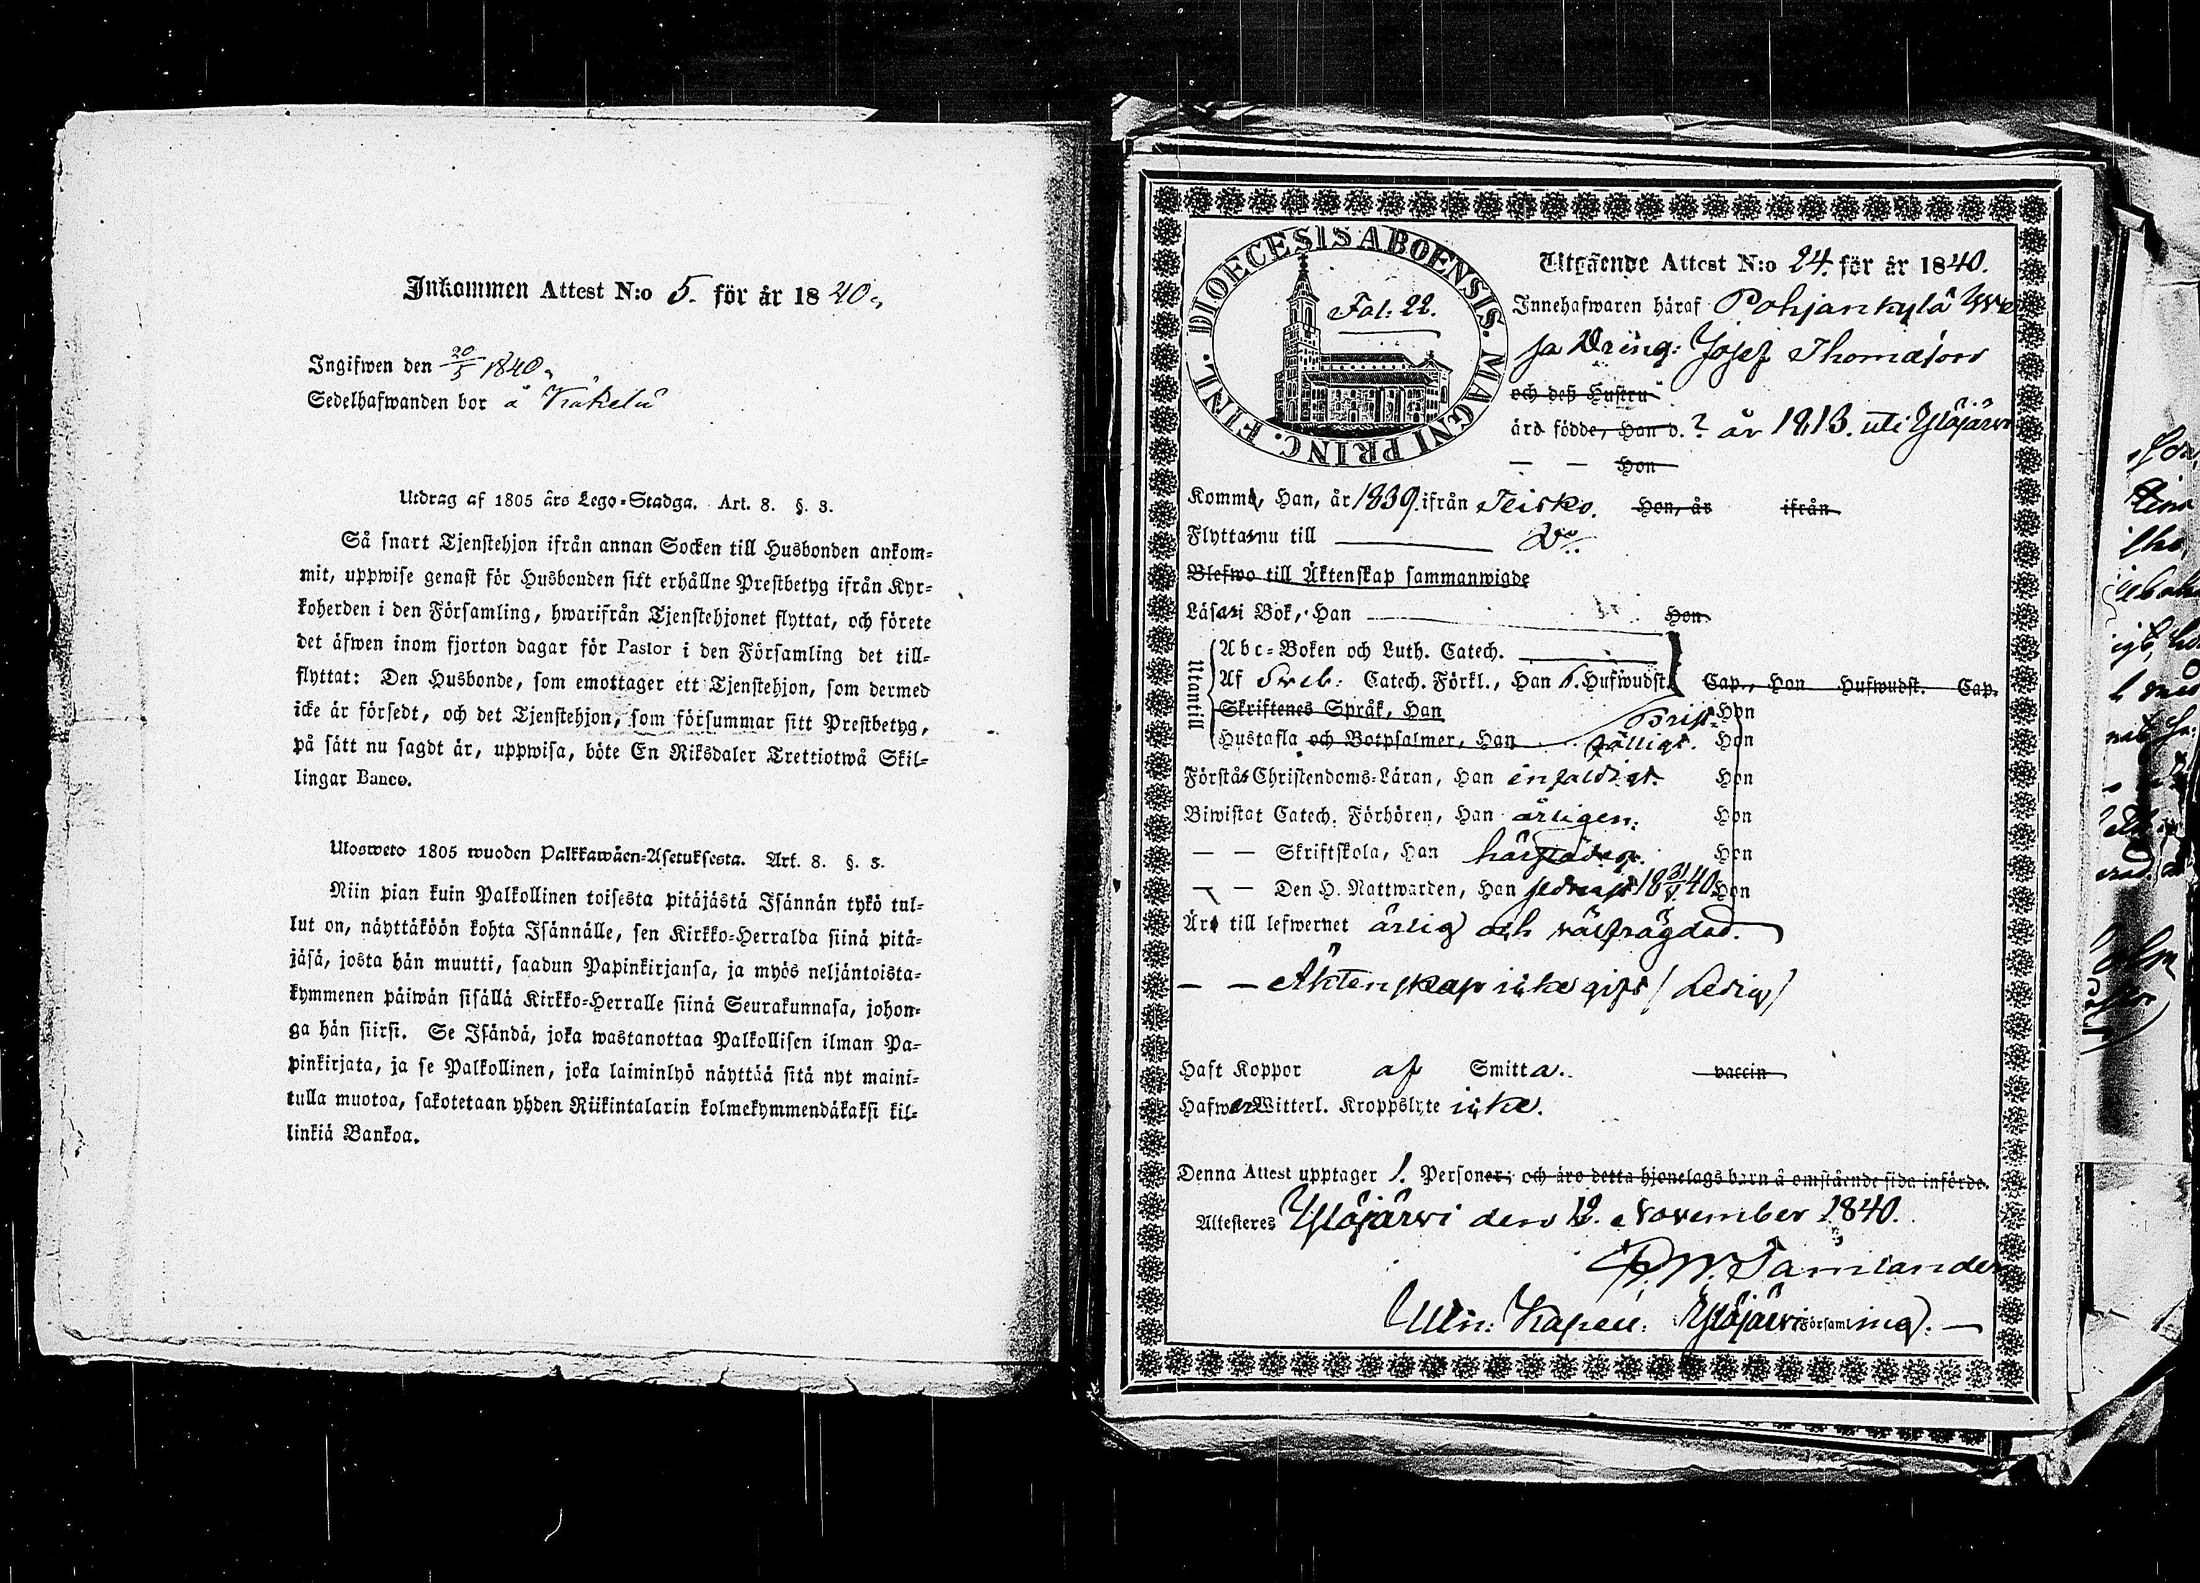 Inkommen Attest N:o 5. för år 1840.
Ingifwen den 20/5 1840.
Sedelhafwanden bor å Käkelä
Utdrag af 1805 års Lego-Stadga. Art. 8. §. 3.
Så snart Tjenstehjon ifrån annan Socken till Husbonden ankom-
mit, uppwise genast för Husbonden sitt erhållne Prestbetyg ifrån Kyr-
koherden i den Församling, hwarifrån Tjenstehjonet flyttat, och förete
det äfwen inom fjorton dagar för Pastor i den Församling det till-
flyttat: Den Husbonde, som emottager ett Tjenstehjon, som dermed
icke är försedt, och det Tjenstehjon, som försummar sitt Prestbetyg,
på sätt nu sagdt är, uppwisa, böte En Riksdaler Trettiotwå Skil-
lingar Banco.
Ulosweto 1805 wuoden Palkkawäen-Asetuksesta. Art. 8. §. 3.
Niin pian kuin Palkollinen toisesta pitäjästä Isännän tykö tul-
lut on, näyttäköön kohta Isännälle, sen Kirkko-Herralda siinä pitä-
jäsä, josta hän muutti, saadun Papinkirjansa, ja myös neljäntoista-
kymmenen päiwän sisällä Kirkko-Herralle siinä Seurakunnasa, johon-
ga hän siirsi. Se Isändä, joka wastanottaa Palkollisen ilman Pa-
pinkirjata, ja se Palkollinen, joka laiminlyö näyttää sitä nyt maini-
tulla muotoa, sakotetaan yhden Riikintalarin kolmekymmendäkaksi kil-
linkiä Bankoa.
DIOECESIS ABOENSIS. MAGNI PRINC. FINL.
Fol: 22.
Utgående Attest N:o 24. för år 1840.
Innehafwaren häraf Pohjankylä
Dräng: Josef Thomasson
och deß Hustru
äro födde, Han d. ? år 1813. uti Ylöjärvi
— — Hon
Komme, Han, år 1839. ifrån Teisko. Hon, år ifrån
Flytta nu till Do.
Blefwo till Äktenskap sammanwigde
Läsa i Bok, Han Hon
Utantill
Abc-Boken och Luth. Catech.
Af Sveb: Catech. Förkl., Han 6. Hufwudst. Cap., Hon Hufwudst. Cap.
Skriftenes Språk, Han Hon
Hustafla och Botpsalmer, Han Hon
Förstå Christendoms-Läran, Han enfaldigt. Hon
Biwistat Catech. Förhören, Han årligen. Hon
— — Skriftskola, Han Hon
— — Den H. Nattwarden, Han 1840 Hon
Äro till lefwernet ärlig och välfrägdad.
— — Äktenskap icke gift / Ledig /
Haft Koppor af Smitta. vaccin
Hafwer Witterl. Kroppslyte icke.
Denna Attest upptager 1. Personer; och äro detta hjonelags barn å omstående sida införde.
Attesteres Ylöjärvi den 12. November 1840.
Ylöjärvi Församling.